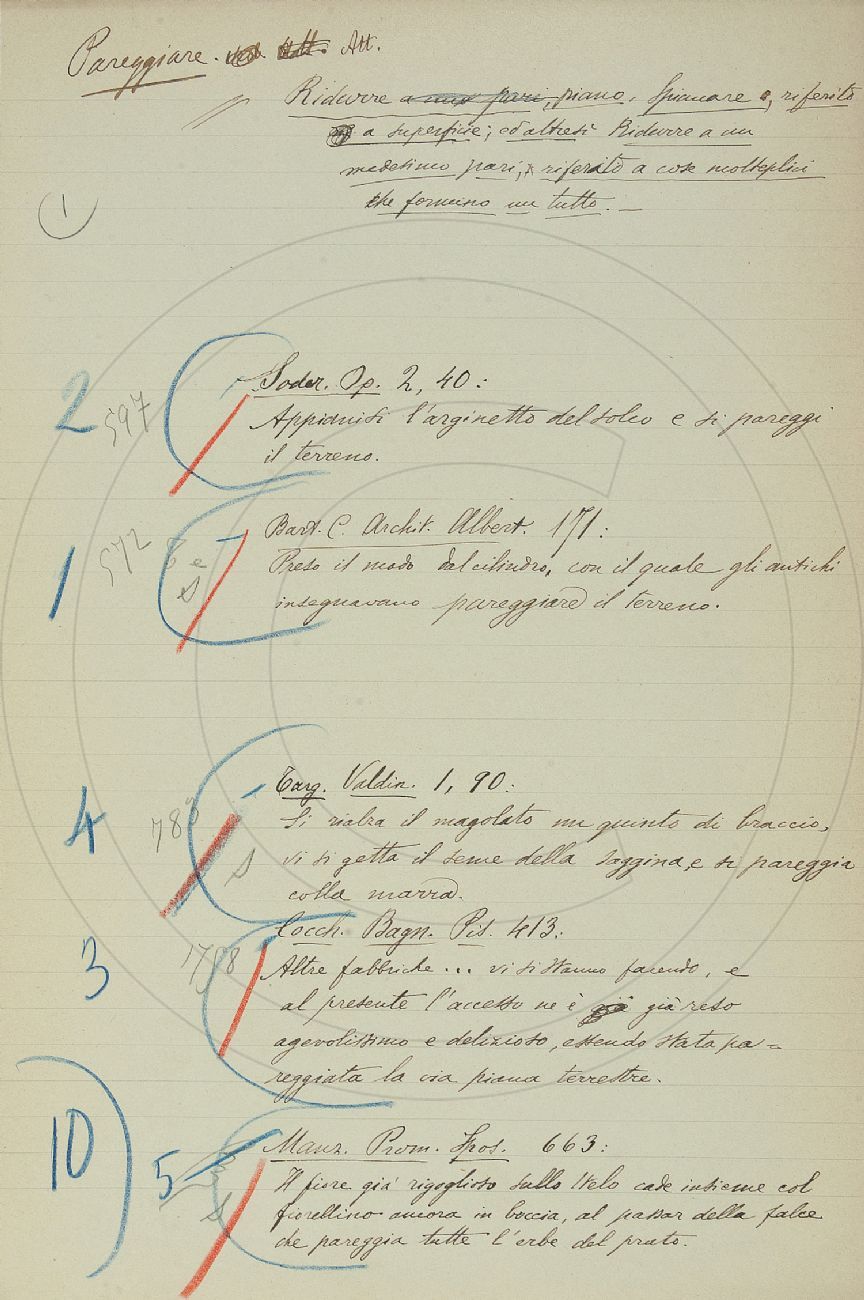 Pareggiare. Att.
Ridurre a un pari, piano, Spianare, riferito
a superficie; ed altresì Ridurre a un
medesimo pari, riferito a cose molteplici
che formino un tutto. —
1
2
597
Soder. Op. 2, 40:
Appianisi l'arginetto del solco e si pareggi
il terreno.
1
572
s
Bart. C. Archit. Albert. 171:
Preso il modo dal cilindro, con il quale gli antichi
insegnavano pareggiare il terreno.
4
783
s
Targ. Valdin. 1, 90:
Si rialza il magolato un quinto di braccio,
vi si getta il seme della saggina, e si pareggia
colla marra.
3
1758
Cocch. Bagn. Pis. 413:
Altre fabbriche... vi si stanno facendo, e
al presente l'accesso ne è già reso
agevolissimo e delizioso, essendo stata pa=
reggiata la via piana terrestre.
10
5
s
Manz. Prom. Spos. 663:
Il fiore già rigoglioso sullo stelo cade insieme col
fiorellino ancora in boccia, al passar della falce
che pareggia tutte l'erbe del prato.